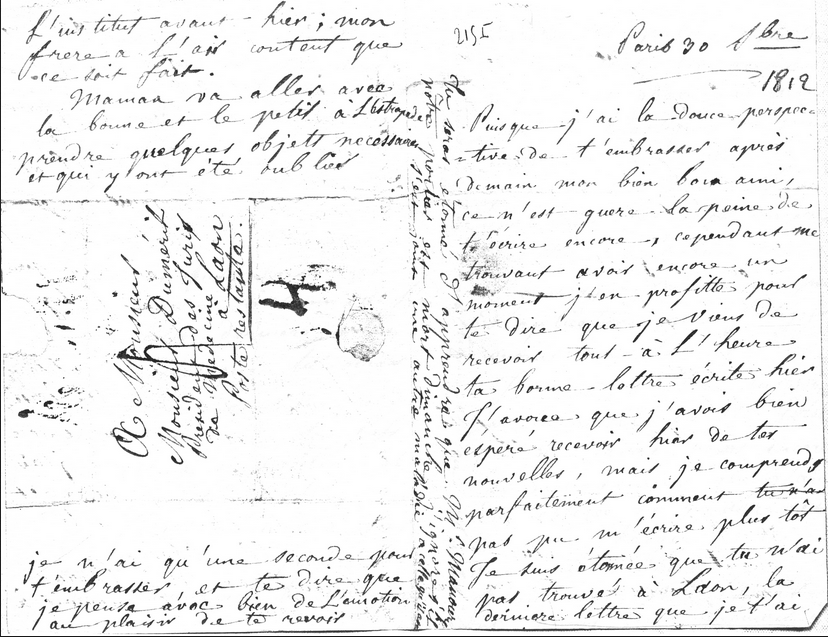 215I
Paris 30 8bre
1812
Puisque j'ai la douce perspec-
-tive de t'embrasser après
demain mon bien bon ami,
ce n'est guere la peine de
t'écrire encore, cependant me
trouvant avoir encore un
moment j'en profitte pour
te dire que je viens de
recevoir tout-à-L'heure
ta bonne lettre écrite hier
J'avoue que j'avois bien
esperé recevoir hier de tes
nouvelles, mais je comprends
parfaitement comment tu n'as
pas pu m'écrire plus tôt
Je suis étonnée que tu n'ai
pas trouvé à Laon, la
derniere lettre que je t'ai
L'institut avant-hier; mon
frere a L'air content que
ce soit fait.
Maman va aller avec
la bonne et le petit à L'estrapade
prendre quelques objets necessaires
et qui y ont été oubliés
A Monsieur
Monsieur Duméril
President des Juris
de Médecine à Laon
Poste restante.
4
je n'ai qu'une seconde pour
t'embrasser et te dire que
je pense avec bien de L'émotion
au plaisir de te revoir
tu seras étonné d'apprendre que M.
notre portier est mort dimanche
s'est joint une autre maladie